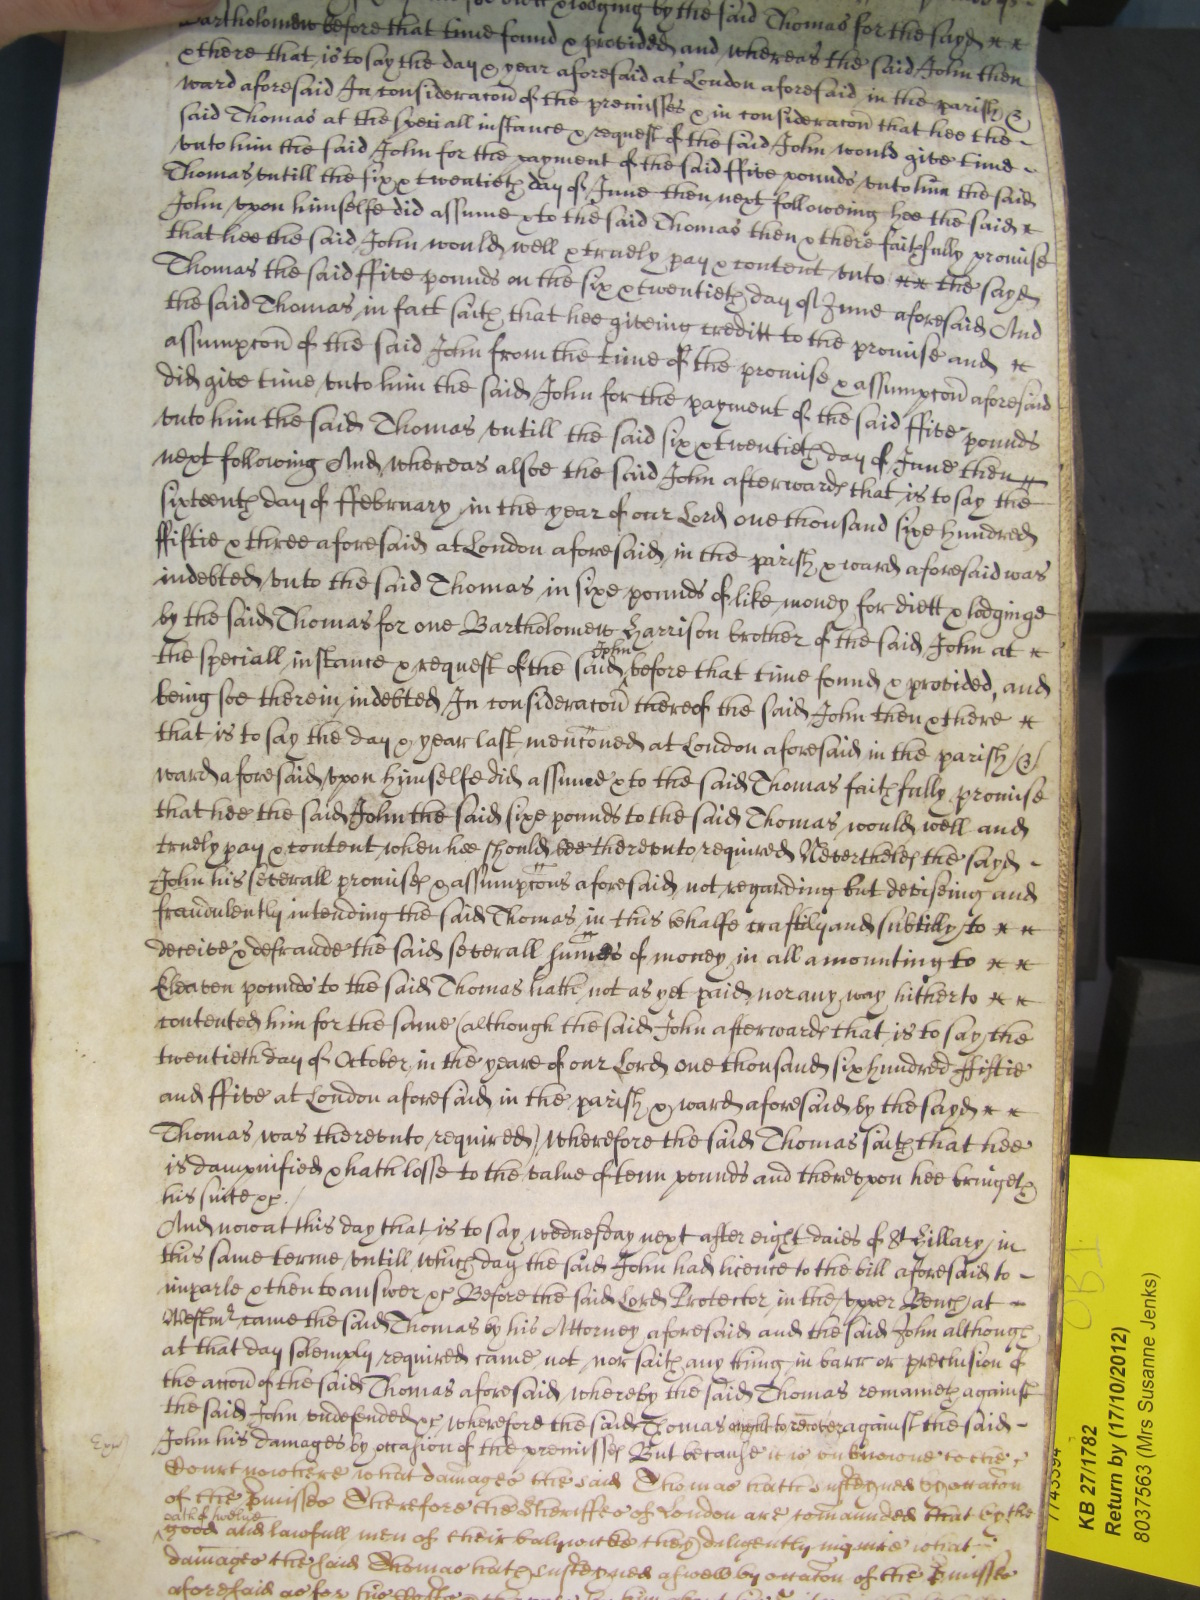 lodging by the said Thomas for the sayd
Bartholomew before that time found & provided and whereas the said John then
& there that is to say the day & year aforesaid at London aforesaid in the parish &
ward aforesaid In consideracon of the premisses & in consideracon that hee the
said Thomas at the speciall instance & request of the said John would give time
unto him the said John for the payment of the said ffive pounds unto him the said
Thomas untill the six & twentieth day of June then next following hee the said
John upon himselfe did assume & to the said Thomas then & there faithfully promise
that hee the said John would well & truely pay & content unto the sayd
Thomas the said ffive pounds on the six & twentieth day of June aforesaid And
the said Thomas in fact saith that hee giveing creditt to the promise and
assumpcon of the said John from the time of the promise & assumpcon aforesaid
did give time unto him the said John for the payment of the said ffive pounds
unto him the said Thomas untill the said six & twentieth day of June then
next following And whereas alsoe the said John afterwards that is to say the
sixteenth day of ffebruary in the year of our Lord one thousand six hundred
ffiftie & three aforesaid at London aforesaid in the parish & ward aforesaid was
indebted unto the said Thomas in sixe pounds of like money for diett & lodginge
by the said Thomas for one Bartholomew Harrison brother of the said John at
the speciall instance & request of the said John before that time found & provided, and
being soe therein indebted In consideracon thereof the said John then & there
that is to say the day & year last mencioned at London aforesaid in the parish &
ward aforesaid upon himselfe did assume & to the said Thomas faithfully promise
that hee the said John the said sixe pounds to the said Thomas would well and
truely pay & content when hee should bee thereunto required Neverthelesse the sayd
John his severall promises & assumpcons aforesaid not regarding but deviseing and
fraudulently intending the said Thomas in this behalfe craftily and subtilly to
deceive & defraude the said severall summes of money in all amounting to
Eleaven pounds to the said Thomas hath not as yet paid nor any way hitherto
contented him for the same (although the said John afterwards that is to say the
twentieth day of October in the yeare of our Lord one thousand six hundred ffiftie
and ffive at London aforesaid in the parish & ward aforesaid by the sayd
Thomas was thereunto required) Wherefore the said Thomas saith that hee
is dampnified & hath losse to the value of tenn pounds and thereupon hee bringeth
his suite &c.
And now at this day that is to say Wednesday next after eight daies of St Hillary in
this same terme untill which day the said John had licence to the bill aforesaid to
imparle & then to answer &c Before the said Lord Protector in the Upper Bench at
Westmr came the said Thomas by his Attorney aforesaid and the said John although
at that day solemply required came not nor saith any thing in barr or preclusion of
the accon of the said Thomas aforesaid whereby the said Thomas remaineth against
the said John undefended &c Wherefore the said Thomas ought to recover against the said
John his damages by occasion of the premisses But because it is unknowne to the
Court now here what damages the said Thomas hath susteyned by occacon
of the pmisses Therefore the Sheriffes of London are comaunded that by the
oath of twelve
good and lawfull men of their baliwicke they diligently inquire what
damages the said Thomas hath susteyned aswell by occacon of the pmisses
aforesaid as for his
KB 27/1782
Return by (17/10/2012)
8037563 (Mrs Susanne Jenks)